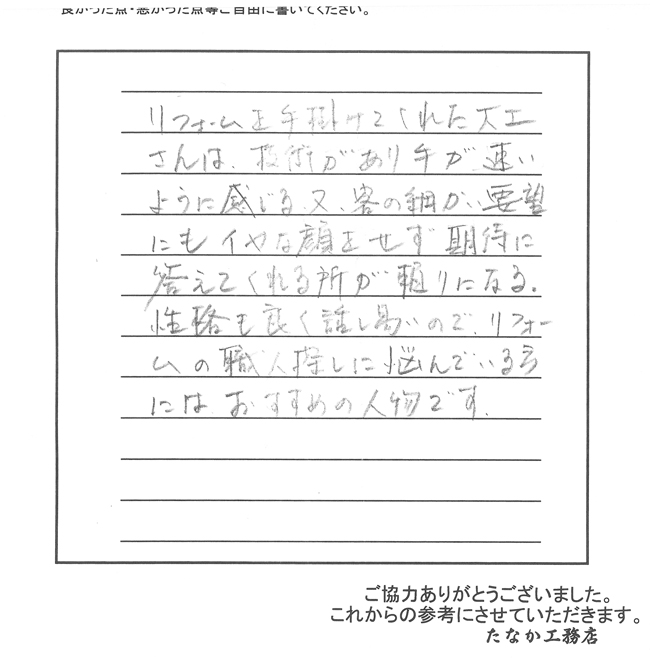 良かった点・悪かった点等ご自由に書いてください。
リフォームを手掛けてくれた大工
さんは、技術があり手が速い
ように感じる。又、客の細かい要望
にもイヤな顔をせず期待に
答えてくれる所が頼りになる。
性格も良く話し易いので、リフォー
ムの職人探しに悩んでいる方
にはおすすめの人物です。
ご協力ありがとうございました。
これからの参考にさせていただきます。
たなか工務店